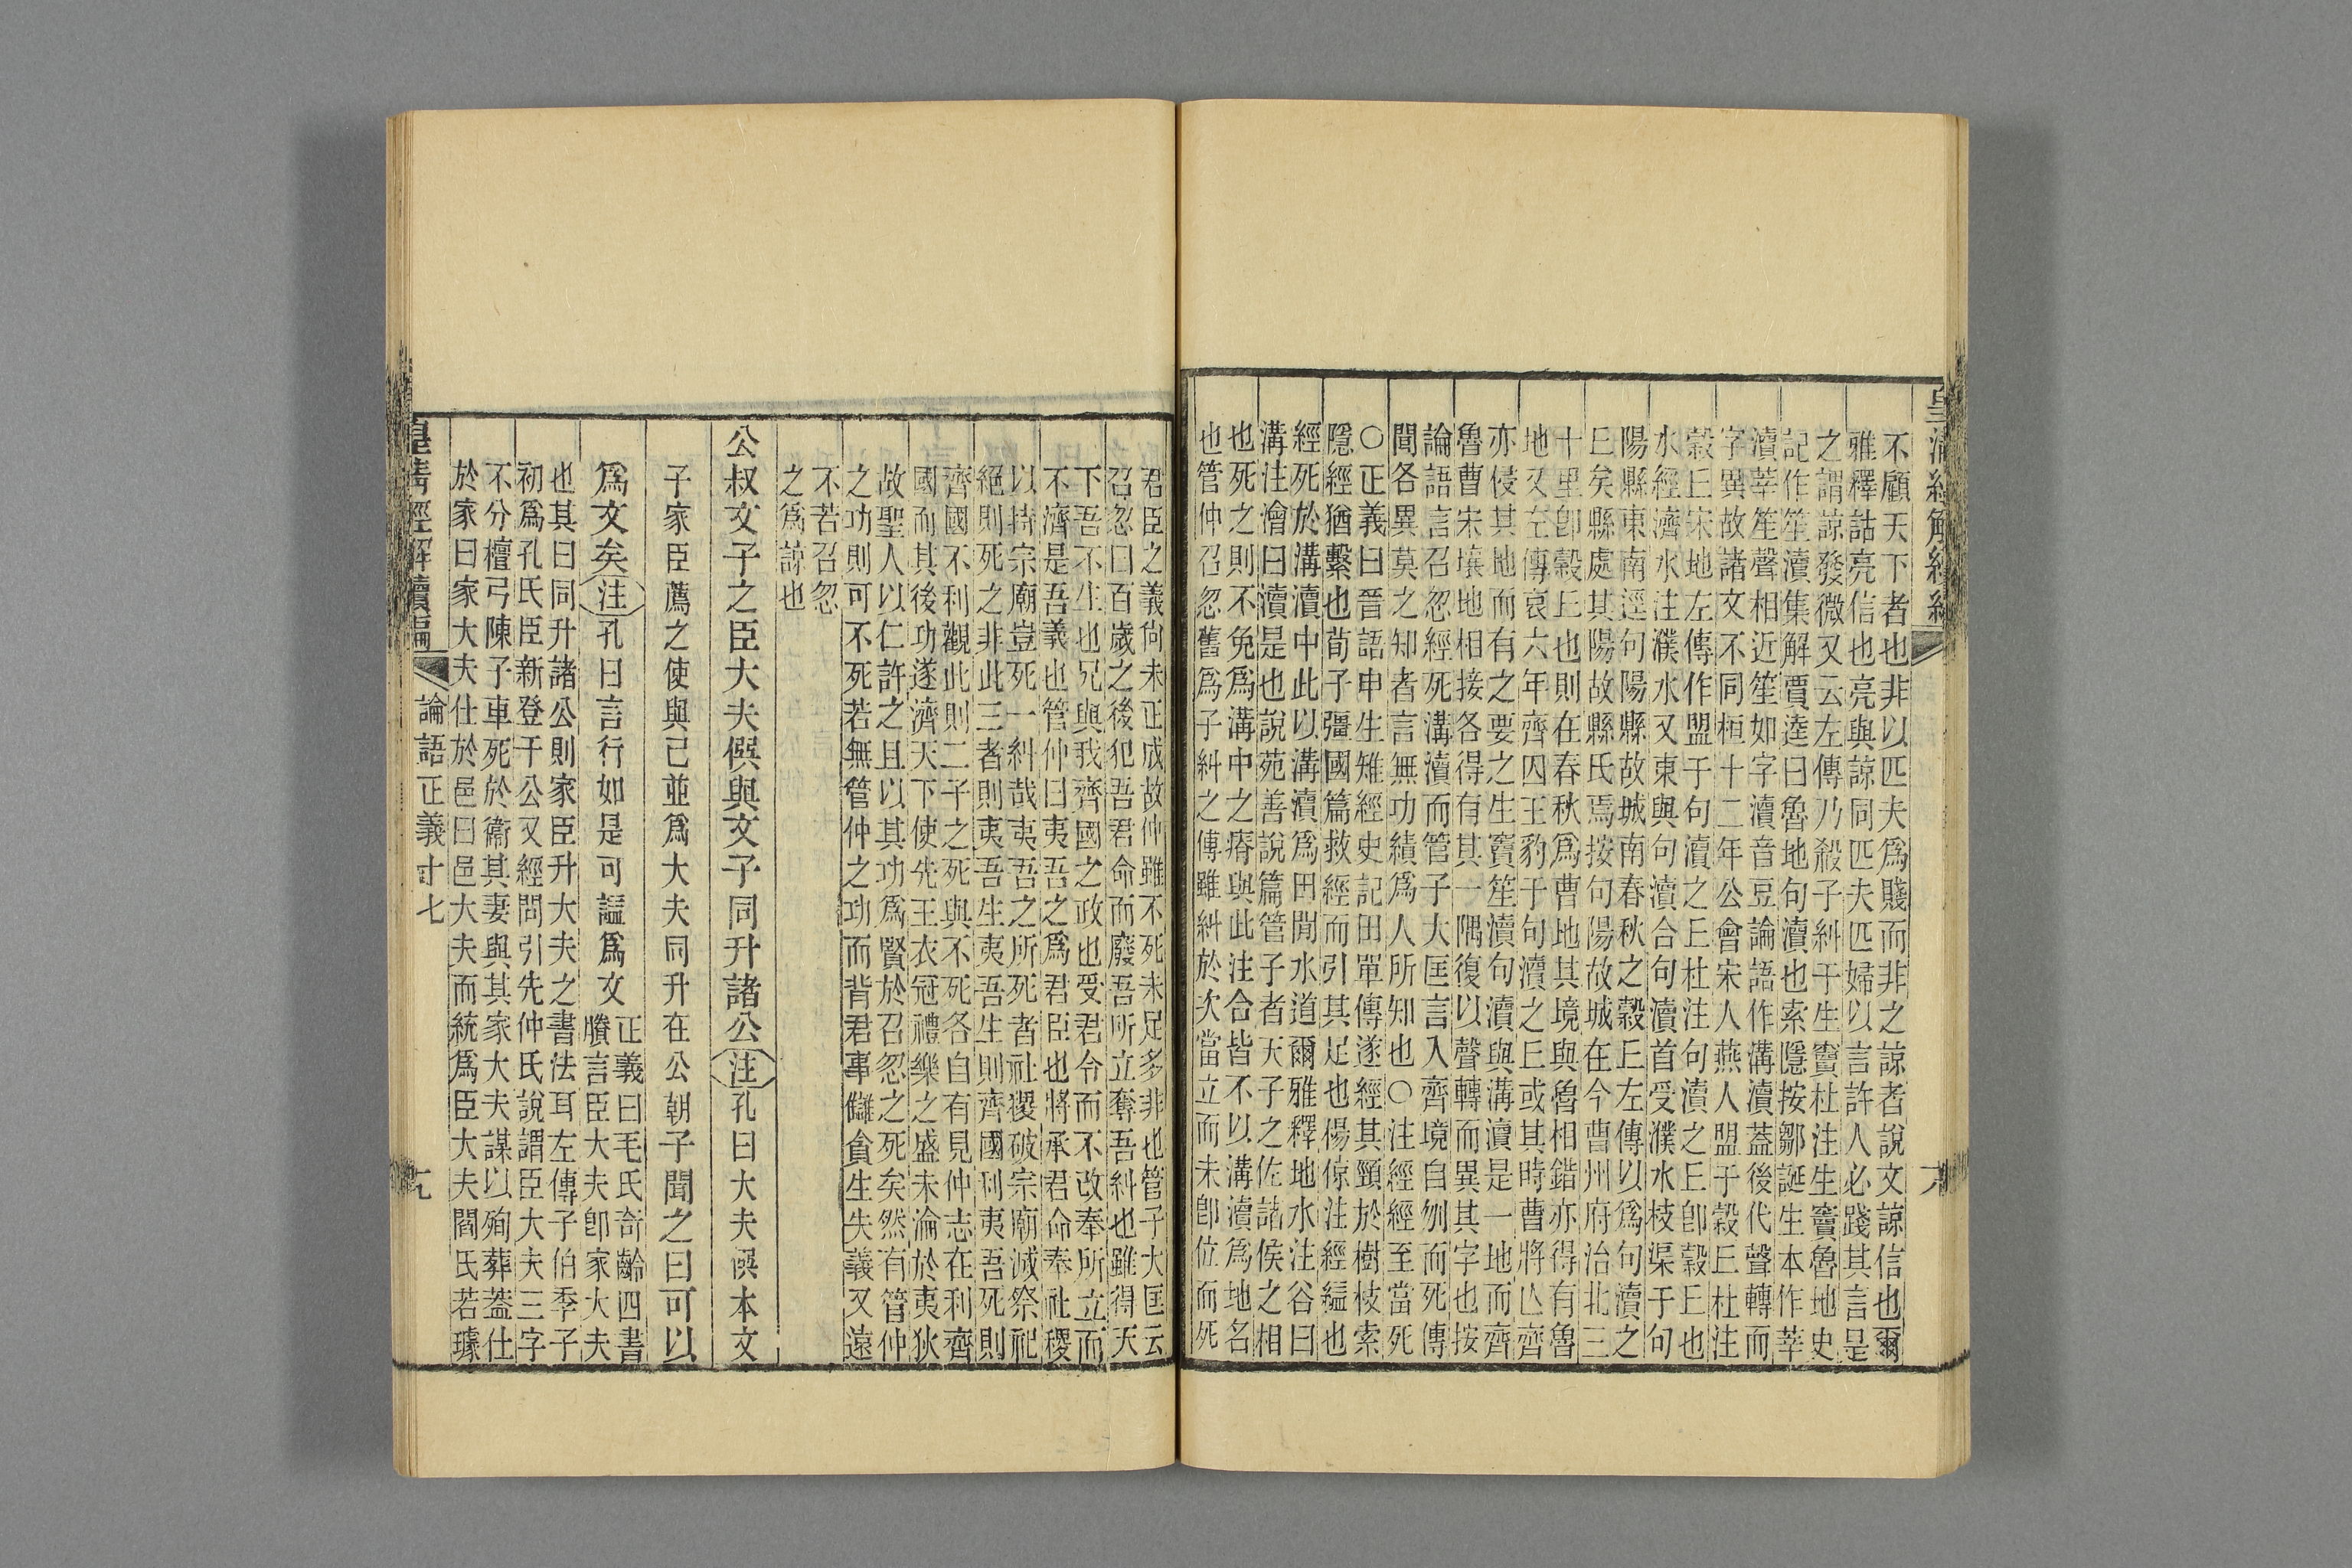 皇清經解續編
不顧天下者也非以匹夫爲賤而非之諒者說文諒信也爾
雅釋詁亮信也亮與諒同匹夫匹婦以言許人必踐其言是
之謂諒發微又云左傳乃殺子糾于生竇杜注生竇魯地史
記作笙瀆集解賈逵曰魯地句瀆也索隱按鄒誕生本作莘
瀆莘笙聲相近笙如字瀆音豆論語作溝瀆蓋後代聲轉而
字異故諸文不同桓十二年公會宋人燕人盟于穀丘杜注
穀丘宋地左傳作盟于句瀆之丘杜注句瀆之丘卽穀丘也
水經濟水注濮水又東與句瀆合句瀆首受濮水枝渠于句
陽縣東南逕句陽縣故城南春秋之穀丘左傳以爲句瀆之
丘矣縣處其陽故縣氏焉按句陽故城在今曹州府治北三
十里卽穀丘也則在春秋爲曹地其境與魯相錯亦得有魯
地又左傳哀六年齊囚王豹于句瀆之丘或其時曹將亾齊
亦侵其地而有之要之生竇笙瀆句瀆與溝瀆是一地而齊
魯曹宋壤地相接各得有其一隅復以聲轉而異其字也按
論語言召忽經死溝瀆而管子大匡言入齊境自刎而死傳
聞各異莫之知者言無功績爲人所知也○注經經至當死
○正義曰晉語申生雉經史記田單傳遂經其頸於樹枝索
隱經猶繫也荀子彊國篇救經而引其足也楊倞注經縊也
經死於溝瀆中此以溝瀆爲田閒水道爾雅釋地水注谷曰
溝注澮曰瀆是也說苑善說篇管子者天子之佐諸侯之相
也死之則不免爲溝中之瘠與此注合皆不以溝瀆爲地名
也管仲召忽舊爲子糾之傳雖糾於次當立而未卽位而死
君臣之義尙未正成故仲雖不死未足多非也管子大匡云
召忽曰百歲之後犯吾君命而廢吾所立奪吾糾也雖得天
下吾不生也兄與我齊國之政也受君令而不改奉所立而
不濟是吾義也管仲曰夷吾之爲君臣也將承君命奉社稷
以持宗廟豈死一糾哉夷吾之所死者社稷破宗廟滅祭祀
絕則死之非此三者則夷吾生夷吾生則齊國利夷吾死則
齊國不利觀此則二子之死與不死各自有見仲志在利齊
國而其後功遂濟天下使先王衣冠禮樂之盛未淪於夷狄
故聖人以仁許之且以其功爲賢於召忽之死矣然有管仲
之功則可不死若無管仲之功而背君事讎貪生失義又遠
不若召忽
之爲諒也
公叔文子之臣大夫僎與文子同升諸公注孔曰大夫僎本文
子家臣薦之使與己並爲大夫同升在公朝子聞之曰可以
爲文矣注孔曰言行如是可謚爲文
正義曰毛氏奇齡四書
賸言臣大夫卽家大夫
也其曰同升諸公則家臣升大夫之書法耳左傳子伯季子
初爲孔氏臣新登于公又經問引先仲氏說謂臣大夫三字
不分檀弓陳子車死於衞其妻與其家大夫謀以殉葬蓋仕
於家曰家大夫仕於邑曰邑大夫而統爲臣大夫閻氏若璩
皇清經解續編 論語正義十七